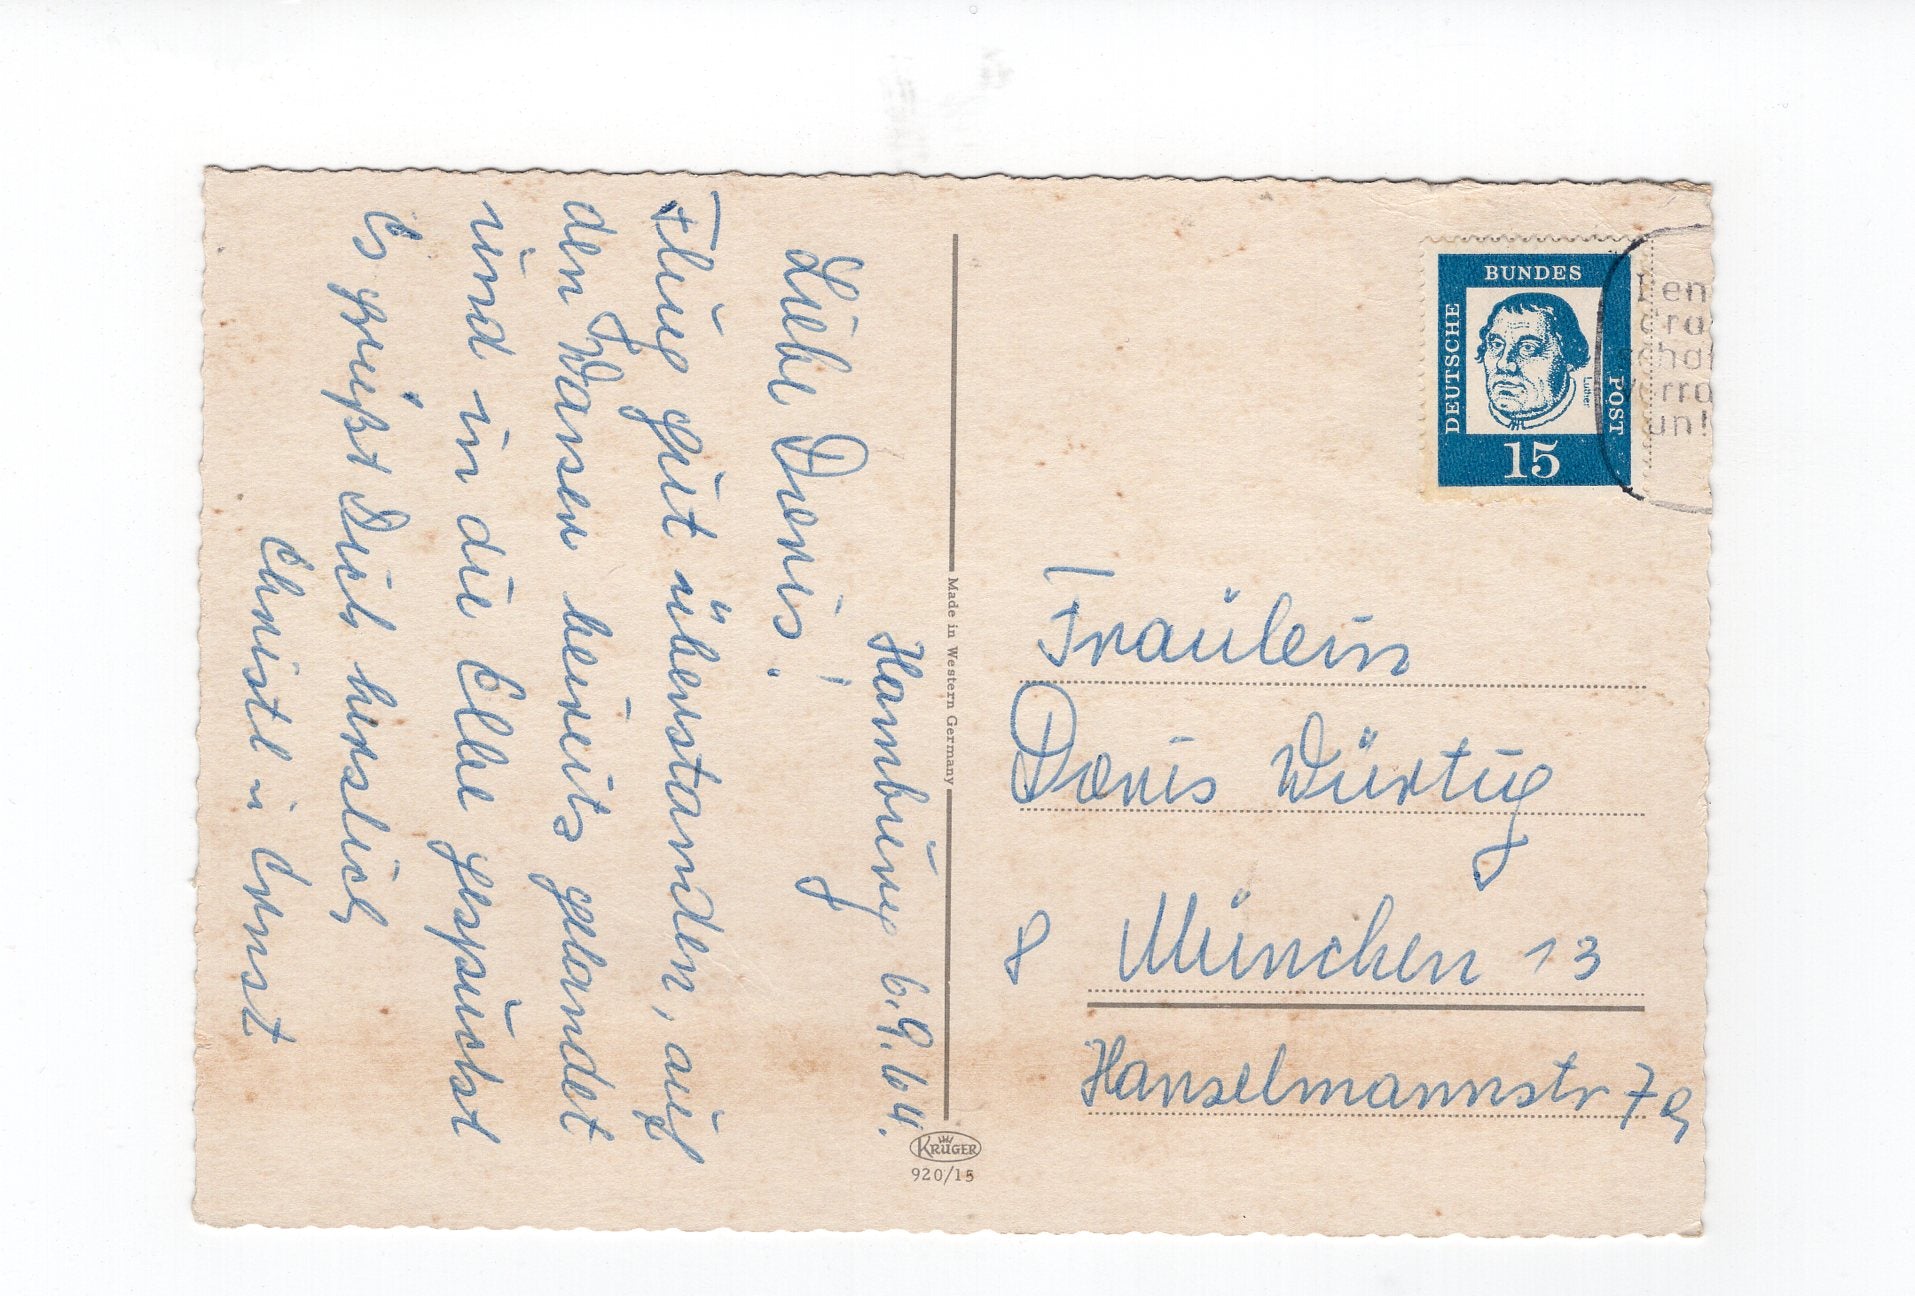 Hamburg 6.9.64.
Liebe Doris!
Flug gut überstanden, auf
den Wasser bereits gelandet
und in die Elbe gespuckt
Es grüßt Dich herzlich
Christl u. Ernst
Made in Western Germany
KRÜGER
920/15
DEUTSCHE
BUNDES
POST
Luther
15
Den
dra
schaf
Vorra
an!
Fräulein
Doris Würtig
8 München 13
Hanselmannstr 7a